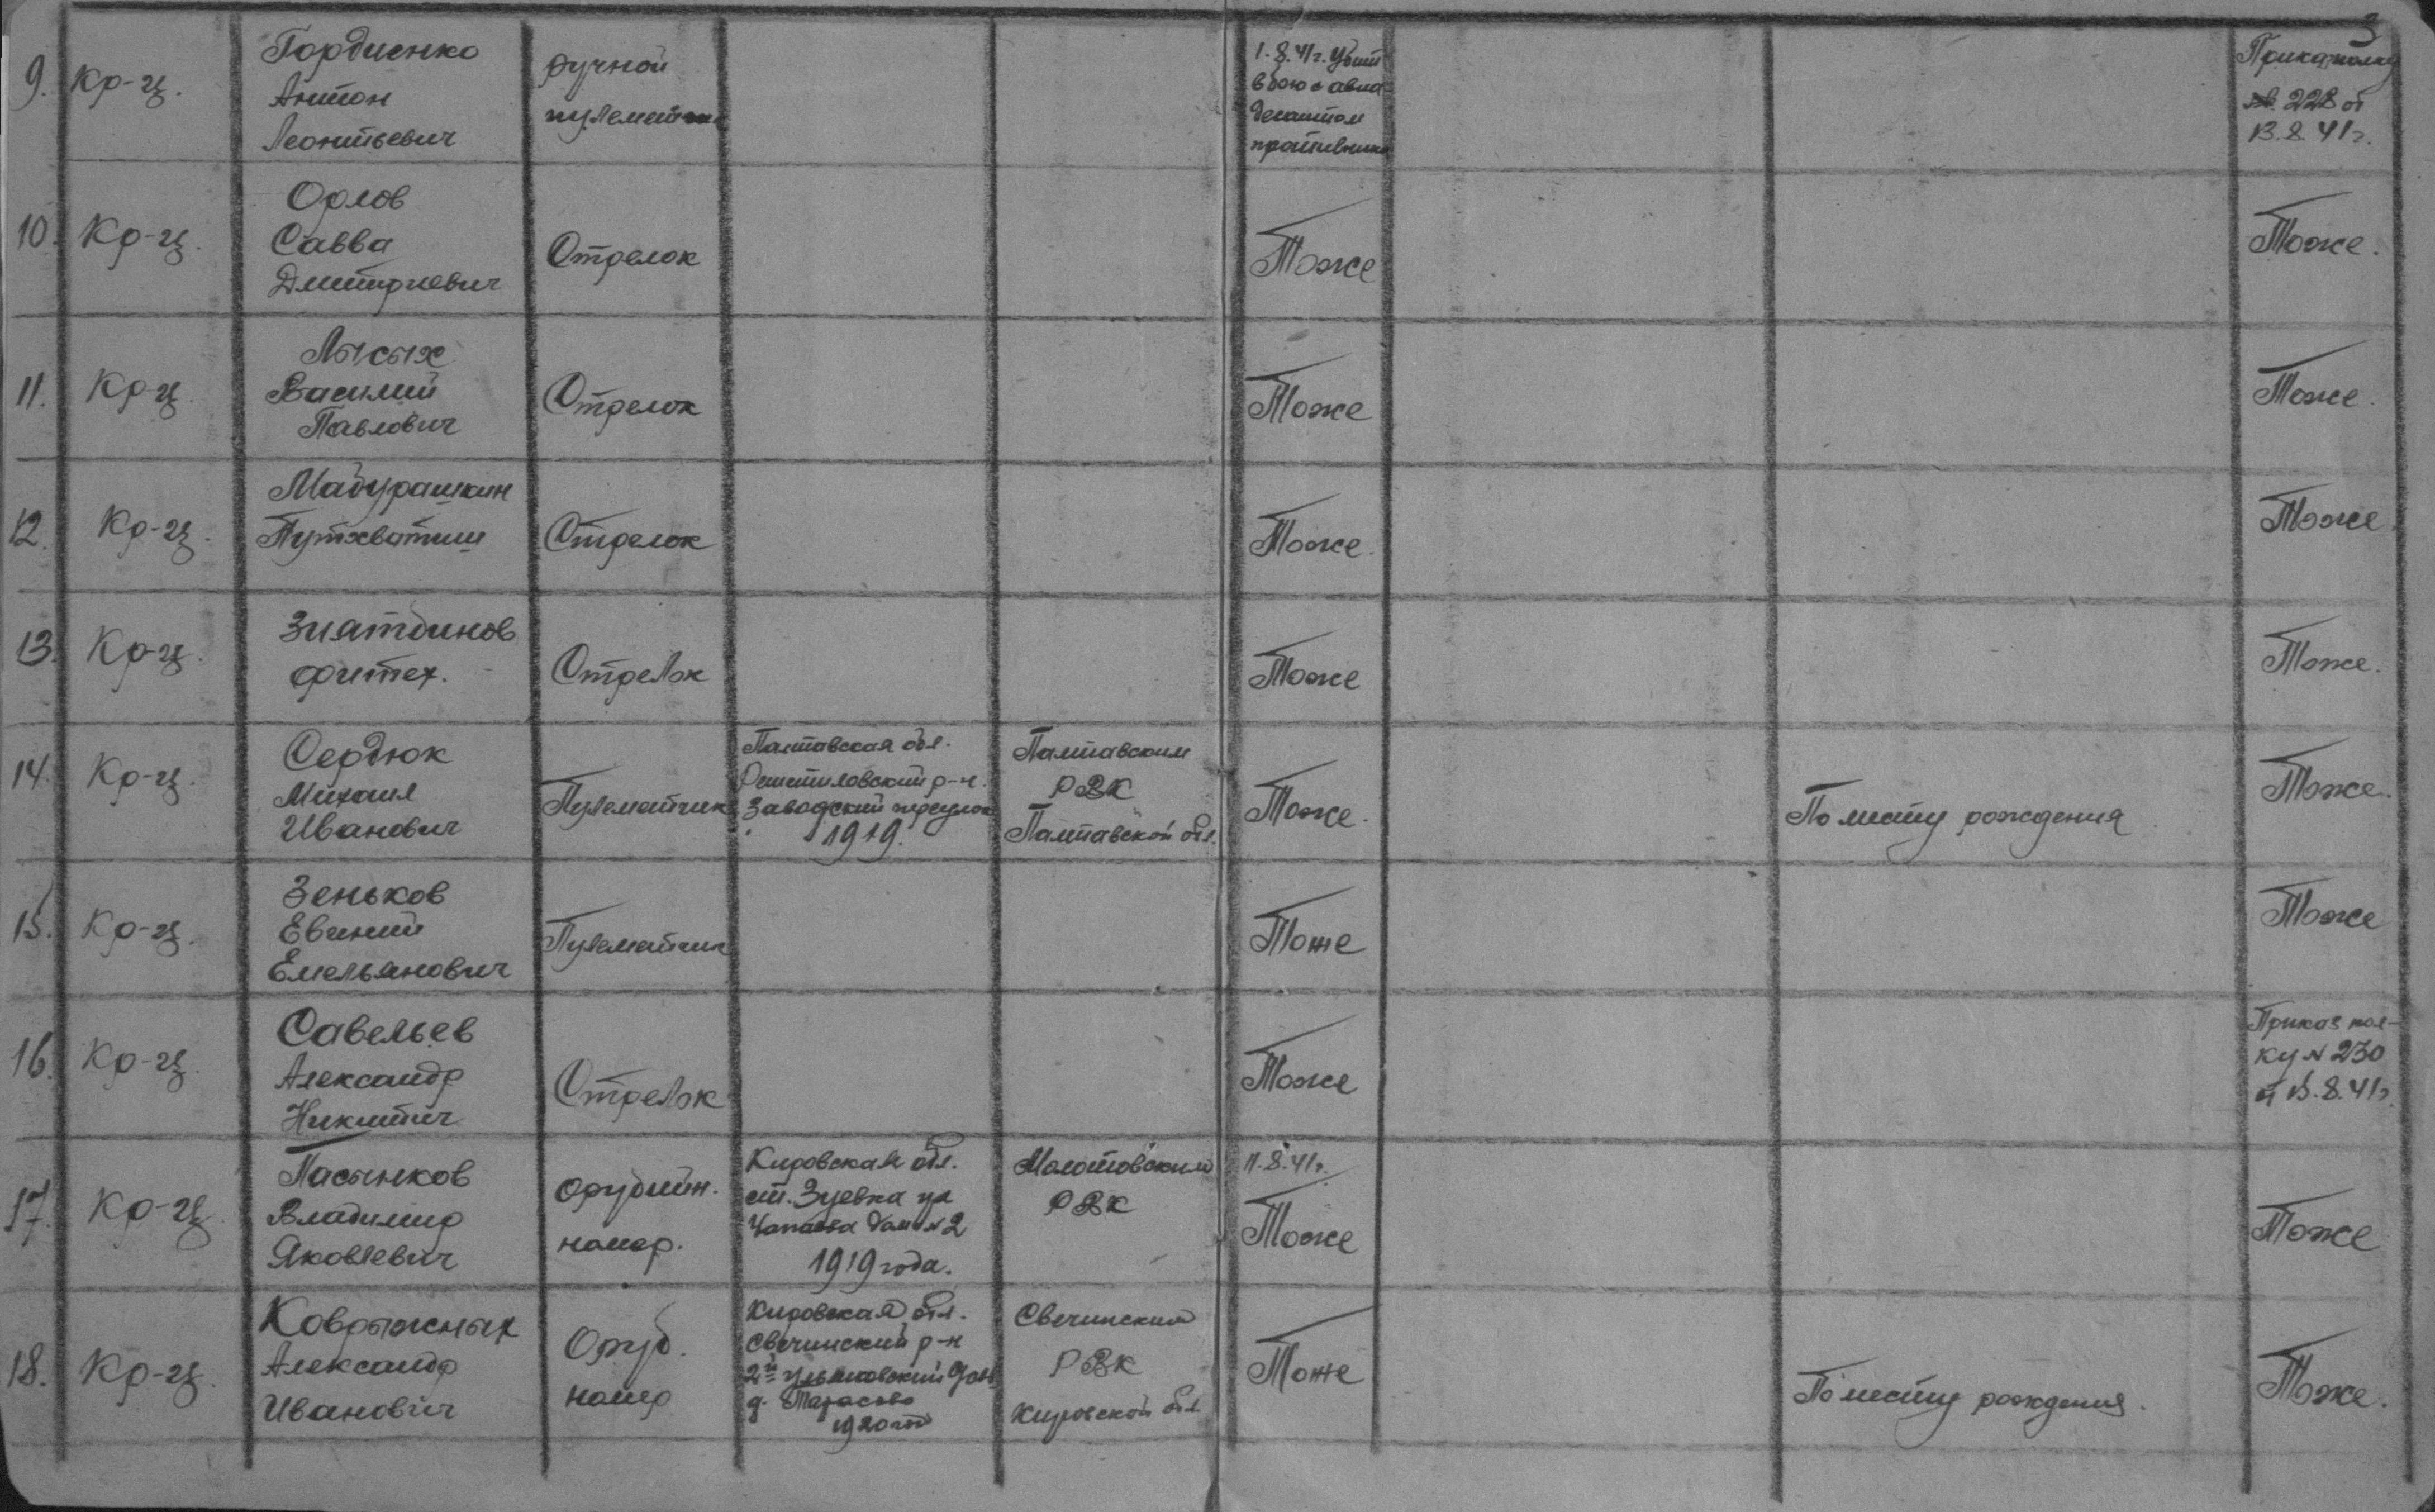 3
9. Кр-ц.
Гордиенко
Антон
Леонтьевич
ручной
пулеметчик
1.8.41г. Убит
в бою с авиа-
десантом
противника
Приказ полку
№ 228 от
13.8.41г.
10. Кр-ц.
Орлов
Савва
Дмитриевич
Стрелок
Тоже
Тоже.
11. Кр-ц
Лысых
Василий
Павлович
Стрелок
Тоже
Тоже.
12. Кр-ц.
Мадурашкин
Путхватши
Стрелок
Тоже.
Тоже
13. Кр-ц.
Зиятдинов
Фитех.
Стрелок
Тоже
Тоже.
14. Кр-ц.
Сердюк
Михаил
Иванович
Пулеметчик
Палтавская обл.
Решетиловский р-н.
Заводский переулок
1919.
Палтавским
РВК
Палтавской обл.
Тоже.
По месту рождения
Тоже.
15. Кр-ц.
Зеньков
Евгений
Емельянович
Пулеметчик
Тоже
Тоже
16. Кр-ц.
Савельев
Александр
Никитич
Стрелок
Тоже
Приказ пол-
ку № 230
от 15.8.41г.
17. Кр-ц.
Пасынков
Владимир
Яковлевич
Орудийн.
номер.
Кировская обл.
ст. Зуевка ул
Чапаева дом №2
1919 года.
Молотовским
РВК
11.8.41г.
Тоже
Тоже
18. Кр-ц.
Ковряжных
Александр
Иванович
Оруд.
номер
Кировская обл.
Свечинский р-н
2й
д. Тарасово
1920 год
Свечинский
РВК
Кировской обл
Тоже
По месту рождения.
Тоже.